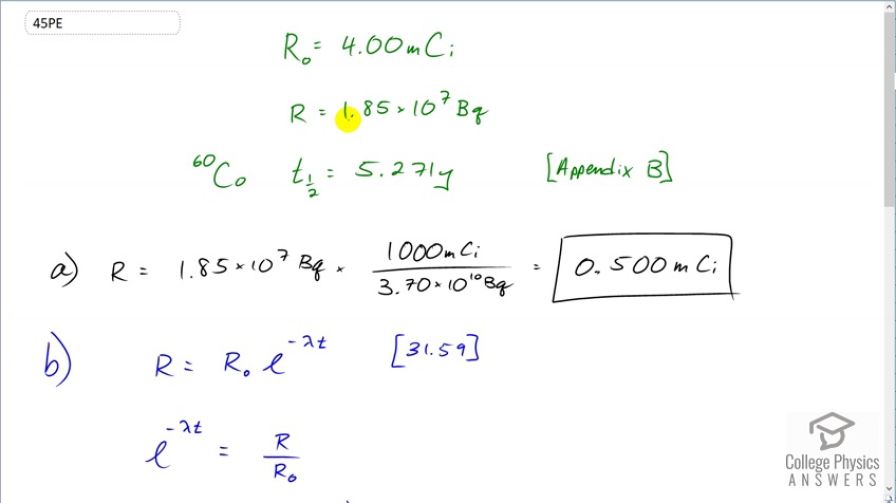 45PE
R₀ = 4.00 mCi
R = 1.85 × 10⁷ Bq
⁶⁰Co t½ = 5.271y [Appendix B]
a) R = 1.85 × 10⁷ Bq × 1000mCi / 3.70 × 10¹⁰ Bq = 0.500 mCi
b) R = R₀ e^-λt [31.59]
e^-λt = R / R₀
College Physics
ANSWERS